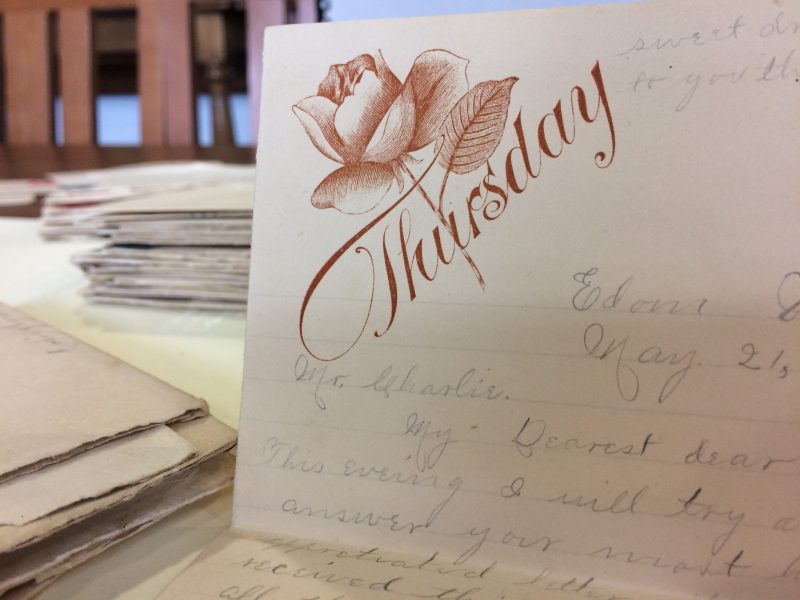 sweet
to you
Thursday
Edom
May. 21,
Mr. Charlie.
My Dearest dear
This eveing I will try
answer your most
appretiated letter
received
all